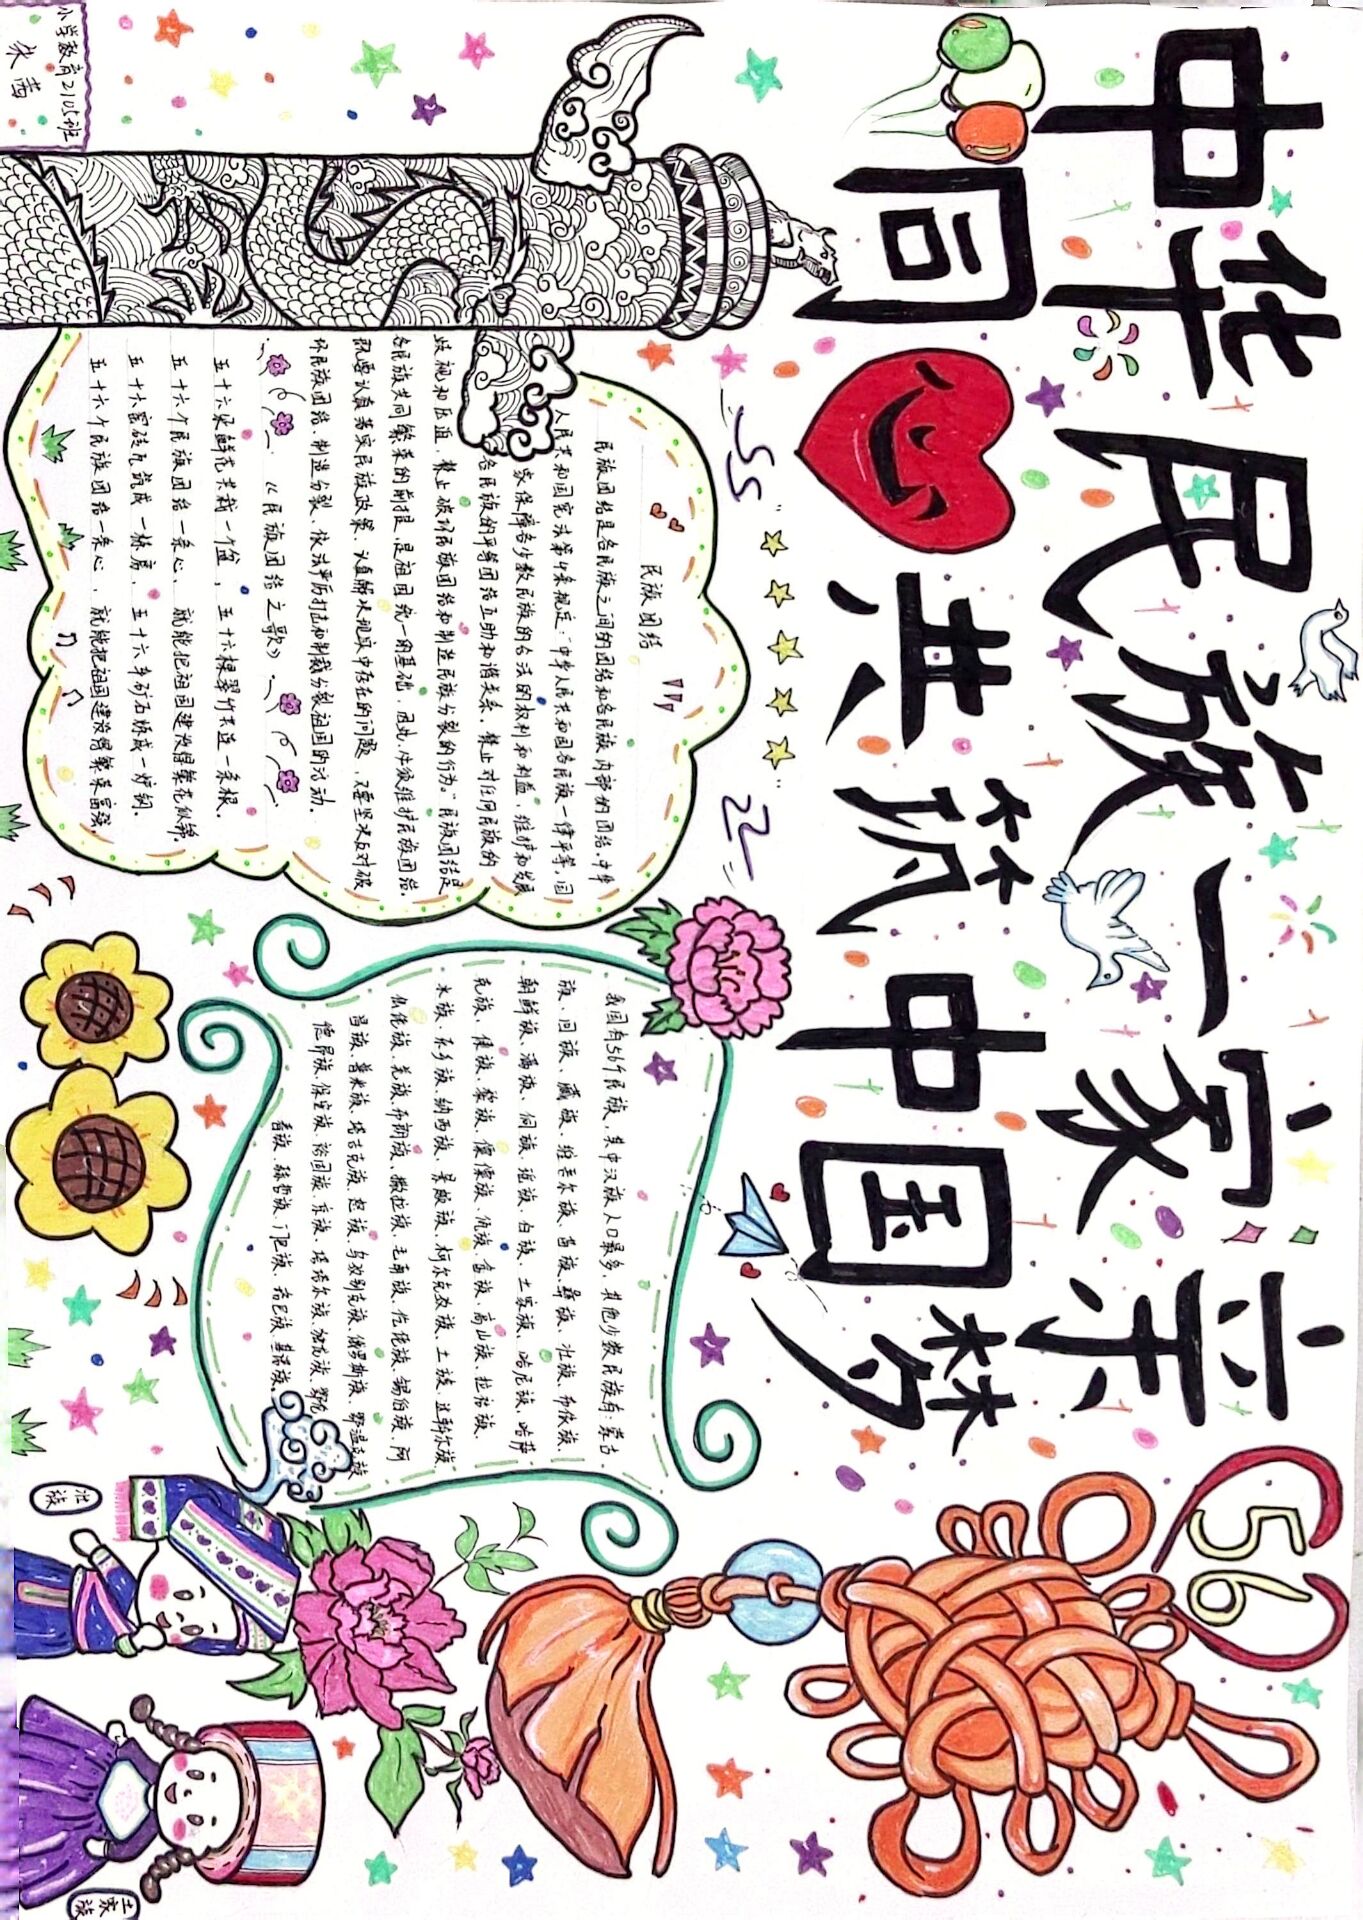 中华民族一家亲
同心共筑中国梦
56
小学教育2105班
朱茜
55
22
民族团结
民族团结是各民族之间的团结和各民族内部的团结。中华
人民共和国宪法第4条规定:中华人民共和国各民族一律平等。国
家保障各少数民族的合法的权利和利益,维护和发展
各民族的平等团结互助和谐关系。禁止对任何民族的
歧视和压迫,禁止破坏民族团结和制造民族分裂的行为。"民族团结是
各民族共同繁荣的前提,是祖国统一的基础,因此,必须维护民族团结。
就要认真落实民族政策、认真解决现实中存在的问题,又要坚决反对破
坏民族团结、制造分裂、依法严厉打击和制裁分裂祖国的活动。
《民族团结之歌》
五十六朵鲜花共栽一个盆,五十六棵翠竹长连一条根。
五十六个民族团结一条心、就能把祖国建设得繁花似锦。
五十六窑砖瓦筑成一栋房,五十六乡矿石炼成一炉钢。
五十六个民族团结一条心、就能把祖国建设得繁荣富强。
我国有56个民族,其中汉族人口最多,其他少数民族有:蒙古
族、回族、藏族、维吾尔族、苗族、彝族、壮族、布依族、
朝鲜族、满族、侗族、瑶族、白族、土家族、哈尼族、哈萨
克族、傣族、黎族、傈僳族、佤族、畲族、高山族、拉祜族、
水族、东乡族、纳西族、景颇族、柯尔克孜族、土族、达斡尔族
仫佬族、羌族、布朗族、撒拉族、毛南族、仡佬族、锡伯族、阿
昌族、普米族、塔吉克族、怒族、乌孜别克族、俄罗斯族、鄂温克族
德昂族、保安族、裕固族、京族、塔塔尔族、独龙族、鄂伦
春族、赫哲族、门巴族、珞巴族、基诺族。
壮族
土家族